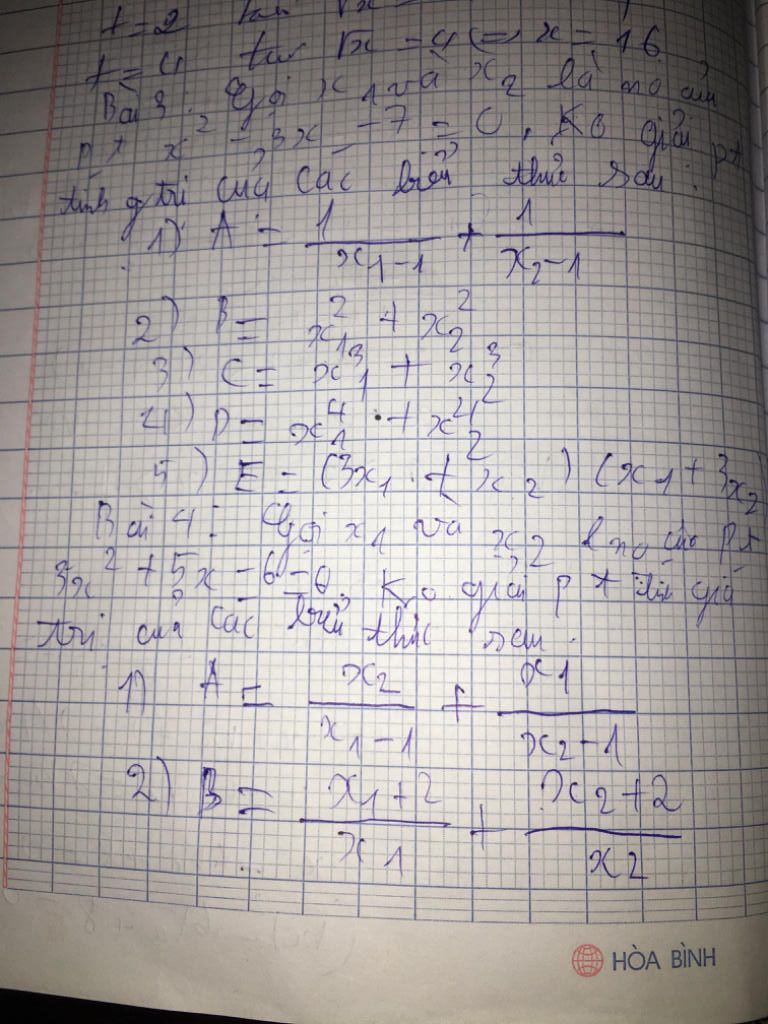 t = 2
t = 4 √x = 4 <=> x = 16
Bài 3: Gọi x₁ và x₂ là no của
pt x² - 3x - 7 = 0. Ko giải pt
tính g trị của các biểu thức sau:
1) A = 1/(x₁-1) + 1/(x₂-1)
2) B = x₁² + x₂²
3) C = x₁³ + x₂³
4) D = x₁⁴ + x₂⁴
5) E = (3x₁ + x₂) (x₁ + 3x₂
Bài 4: Gọi x₁ và x₂ l no của pt
3x² + 5x - 6 = 0. Ko giải pt tính giá
trị của các biểu thức sau.
1) A = x₂/(x₁-1) + x₁/(x₂-1)
2) B = (x₁+2)/x₁ + (x₂+2)/x₂
HÒA BÌNH